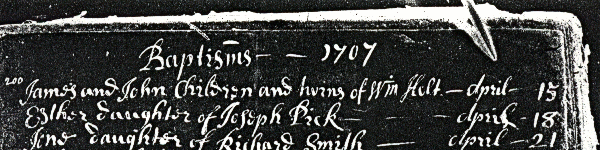 Baptisms — — 1707
200 James and John Children and twins of Wm Holt — April — 15
Esther daughter of Joseph Pick — — April — 18
Jone daughter of Richard Smith — April — 21